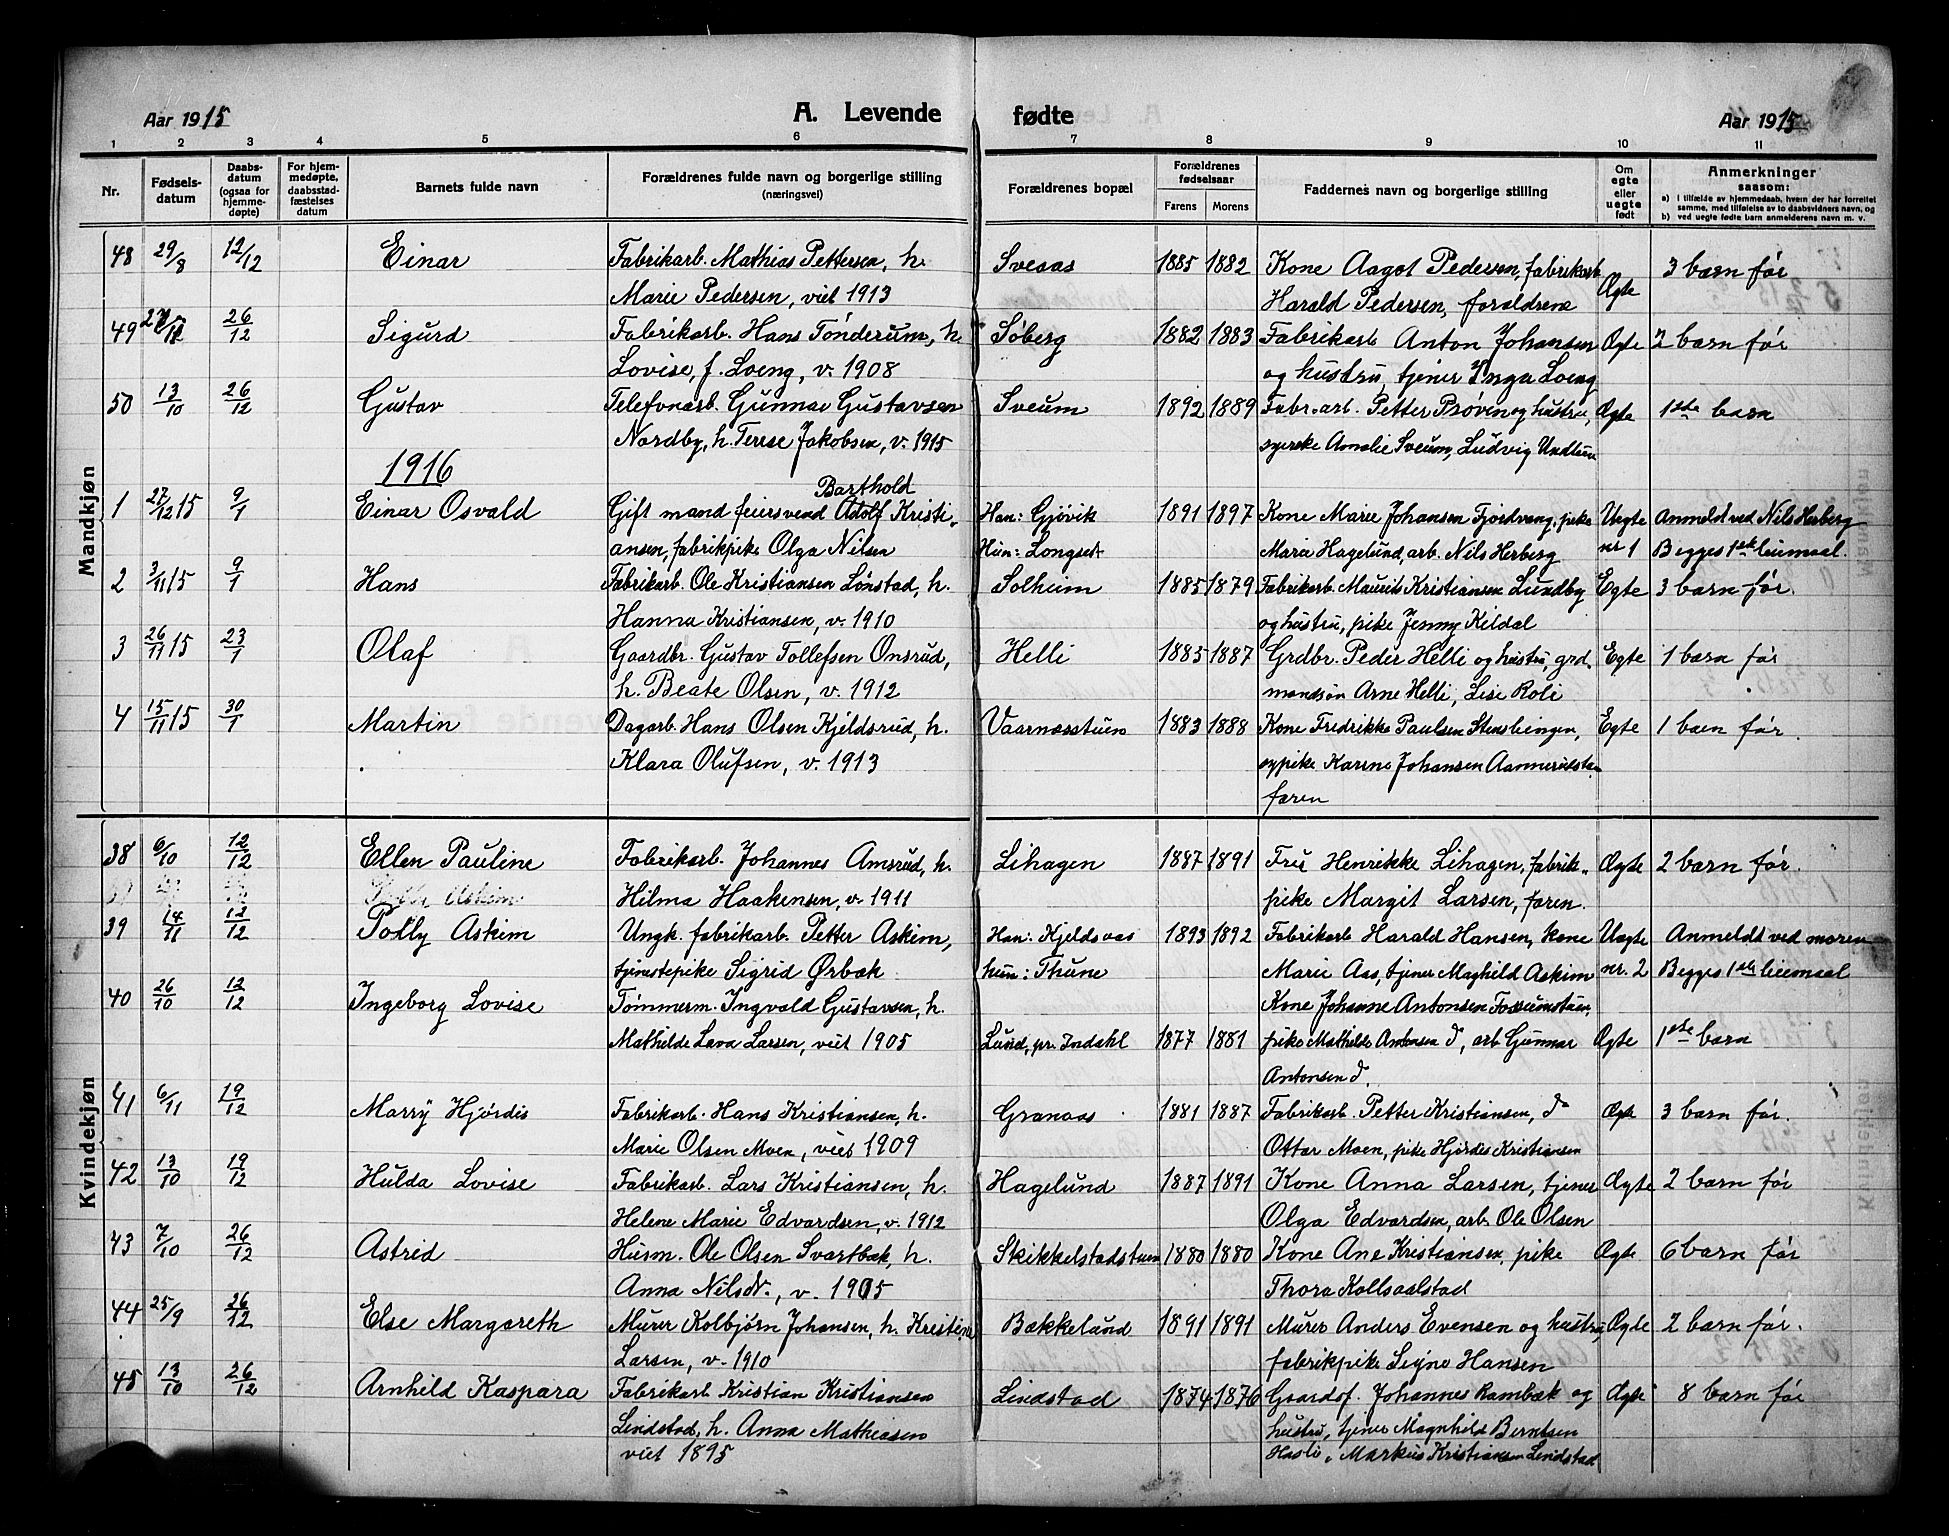 Aar 1915 A. Levende fødte Aar 1915
1 2 3 4 5 6 7 8 9 10 11
Nr.
Fødsels-
datum
Daabs-
datum
(ogsaa for
hjemme-
døpte)
For hjem-
medøpte,
daabsstad-
fæstelses
datum
Barnets fulde navn
Forældrenes fulde navn og borgerlige stilling
(næringsvei)
Forældrenes bopæl
Forældrenes
fødselsaar
Farens Morens
Faddernes navn og borgerlige stilling
Om
egte
eller
uegte
født
Anmerkninger
saasom:
a) I tilfælde av hjemmedaab, hvem der har forrettet
samme, med tilføielse av to daabsvidners navn, og
b) ved uegte fødte barn anmelderens navn m. v.
Mandkjøn
48 29/8 12/12 Einar Fabrikarb. Mathias Pettersen, h. Sveaas 1885 1882 Kone Aagot Pedersen, fabrikarb. Ægte 3 barn før
Marie Pedersen, viet 1913 Harald Pedersen, forældrene
49 26/12 Sigurd Fabrikarb. Hans Tönderum, h. Søberg 1882 1883 Fabrikarb Anton Johansen Ægte 2 barn før
Lovise, f. Loeng, v. 1908 og hustru, tjener Inga Loeng
50 13/10 26/12 Gustav Telefonarb. Gunnar Gustavsen Sveum 1892 1889 Fabr. arb. Petter Prøven og hustru, Ægte 1ste barn
Nordby, h. Terese Jakobsen, v. 1915 syerske Amalie Sveum, Ludvig
1916
Barthold
1 27/12 15 9/1 Einar Osvald Gift mand feiersvend Adolf Kristi- Han: Gjøvik 1891 1897 Kone Marie Johansen Fjordvang, pike Uegte Anmeldt ved Nils Herberg
ansen, fabrikpike Olga Nilsen Hun: Longset Maria Hagelund, arb. Nils Herberg nr 1 Begges 1ste leiermaal.
2 3/11 15 9/1 Hans Fabrikarb. Ole Kristiansen Lønstad, h. Solheim 1885 1879 Fabrikarb. Maurits Kristiansen Lundby Egte 3 barn før.
Hanna Kristiansen, v. 1910 og hustru, pike Jenny Kildal
3 26/11 15 23/1 Olaf Gaardbr. Gustav Tollefsen Onsrud, Helli 1885 1887 Grdbr. Peder Helli og hustru, grd- Egte 1 barn før
h. Beate Olsen, v. 1912 mandsøn Arne Helli, Lise Roli
4 15/11 15 30/1 Martin Dagarb. Hans Olsen Kjeldsrud, h. Vaarnæsstuen 1883 1888 Kone Fredrikke Paulsen Stensliengen, Egte 1 barn før.
Klara Olufsen, v. 1913 sypike Karine Johansen
faren
Kvindekjøn
38 6/10 12/12 Ellen Pauline Fabrikarb. Johannes Amsrud, h. Lihagen 1887 1891 Fru Henrikke Lihagen, fabrik- Ægte 2 barn før.
Hilma Haakensen, v. 1911 pike Margit Larsen, faren.
39 14/11 12/12 Polly Askim Ungk. fabrikarb. Petter Askim, Han: Kjeldsaas 1893 1892 Fabrikarb Harald Hansen, kone Uægte Anmeldt ved moren
tjenestepike Sigrid Ørbæk hun: Thune Marie Aas, tjener Maghild Askim nr. 2 Begges 1ste leiermaal
40 26/10 12/12 Ingeborg Lovise Tømmerm. Ingvald Gustavsen, h. Kone Johanne Antonsen Fossumstuen,
Mathilde Lava Larsen, viet 1905 Lund, pr. Indahl 1877 1881 pike Mathilde Antonsen do, arb Gunnar Ægte 1ste barn
Antonsen do.
41 6/11 19/12 Marry Hjördis Fabrikarb. Hans Kristiansen, h. Granaas 1881 1887 Fabrikarb. Petter Kristiansen, do Ægte 3 barn før.
Marie Olsen Moen, viet 1909 Ottar Moen, pike Hjördis Kristiansen
42 13/10 19/12 Hulda Lovise Fabrikarb. Lars Kristiansen, h. Hagelund 1887 1891 Kone Anna Larsen, tjener Ægte 2 barn før
Helene Marie Edvardsen, v. 1912 Olga Edvardsen, arb. Ole Olsen
43 7/10 26/12 Astrid Husm. Ole Olsen Svartbæk, h. Skikkelstadstuen 1880 1880 Kone Ane Kristiansen, pike Ægte 6 barn før
Anna Nilsdr., v. 1905 Thora Kollsaalstad
44 25/9 26/12 Else Margareth Murer Kolbjørn Johansen, h. Kristine Bækkelund 1891 1891 Murer Anders Evensen og hustru, Ægte 2 barn før.
Larsen, v. 1910 fabrikpike Signe Hansen
45 13/10 26/12 Arnhild Kaspara Fabrikarb Kristian Kristiansen Lindstad 1874 1876 Gaardsf. Johannes Rambæk og Ægte 8 barn før
Lindstad, h. Anna Mathiesen hustru, tjener Magnhild Berntsen
viet 1895 Hasle, Markus Kristiansen Lindstad